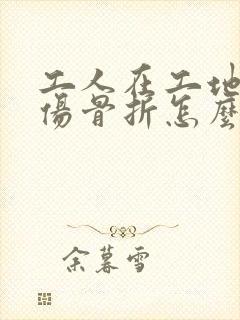 工人在工地
傷骨折怎麼
余暮雪